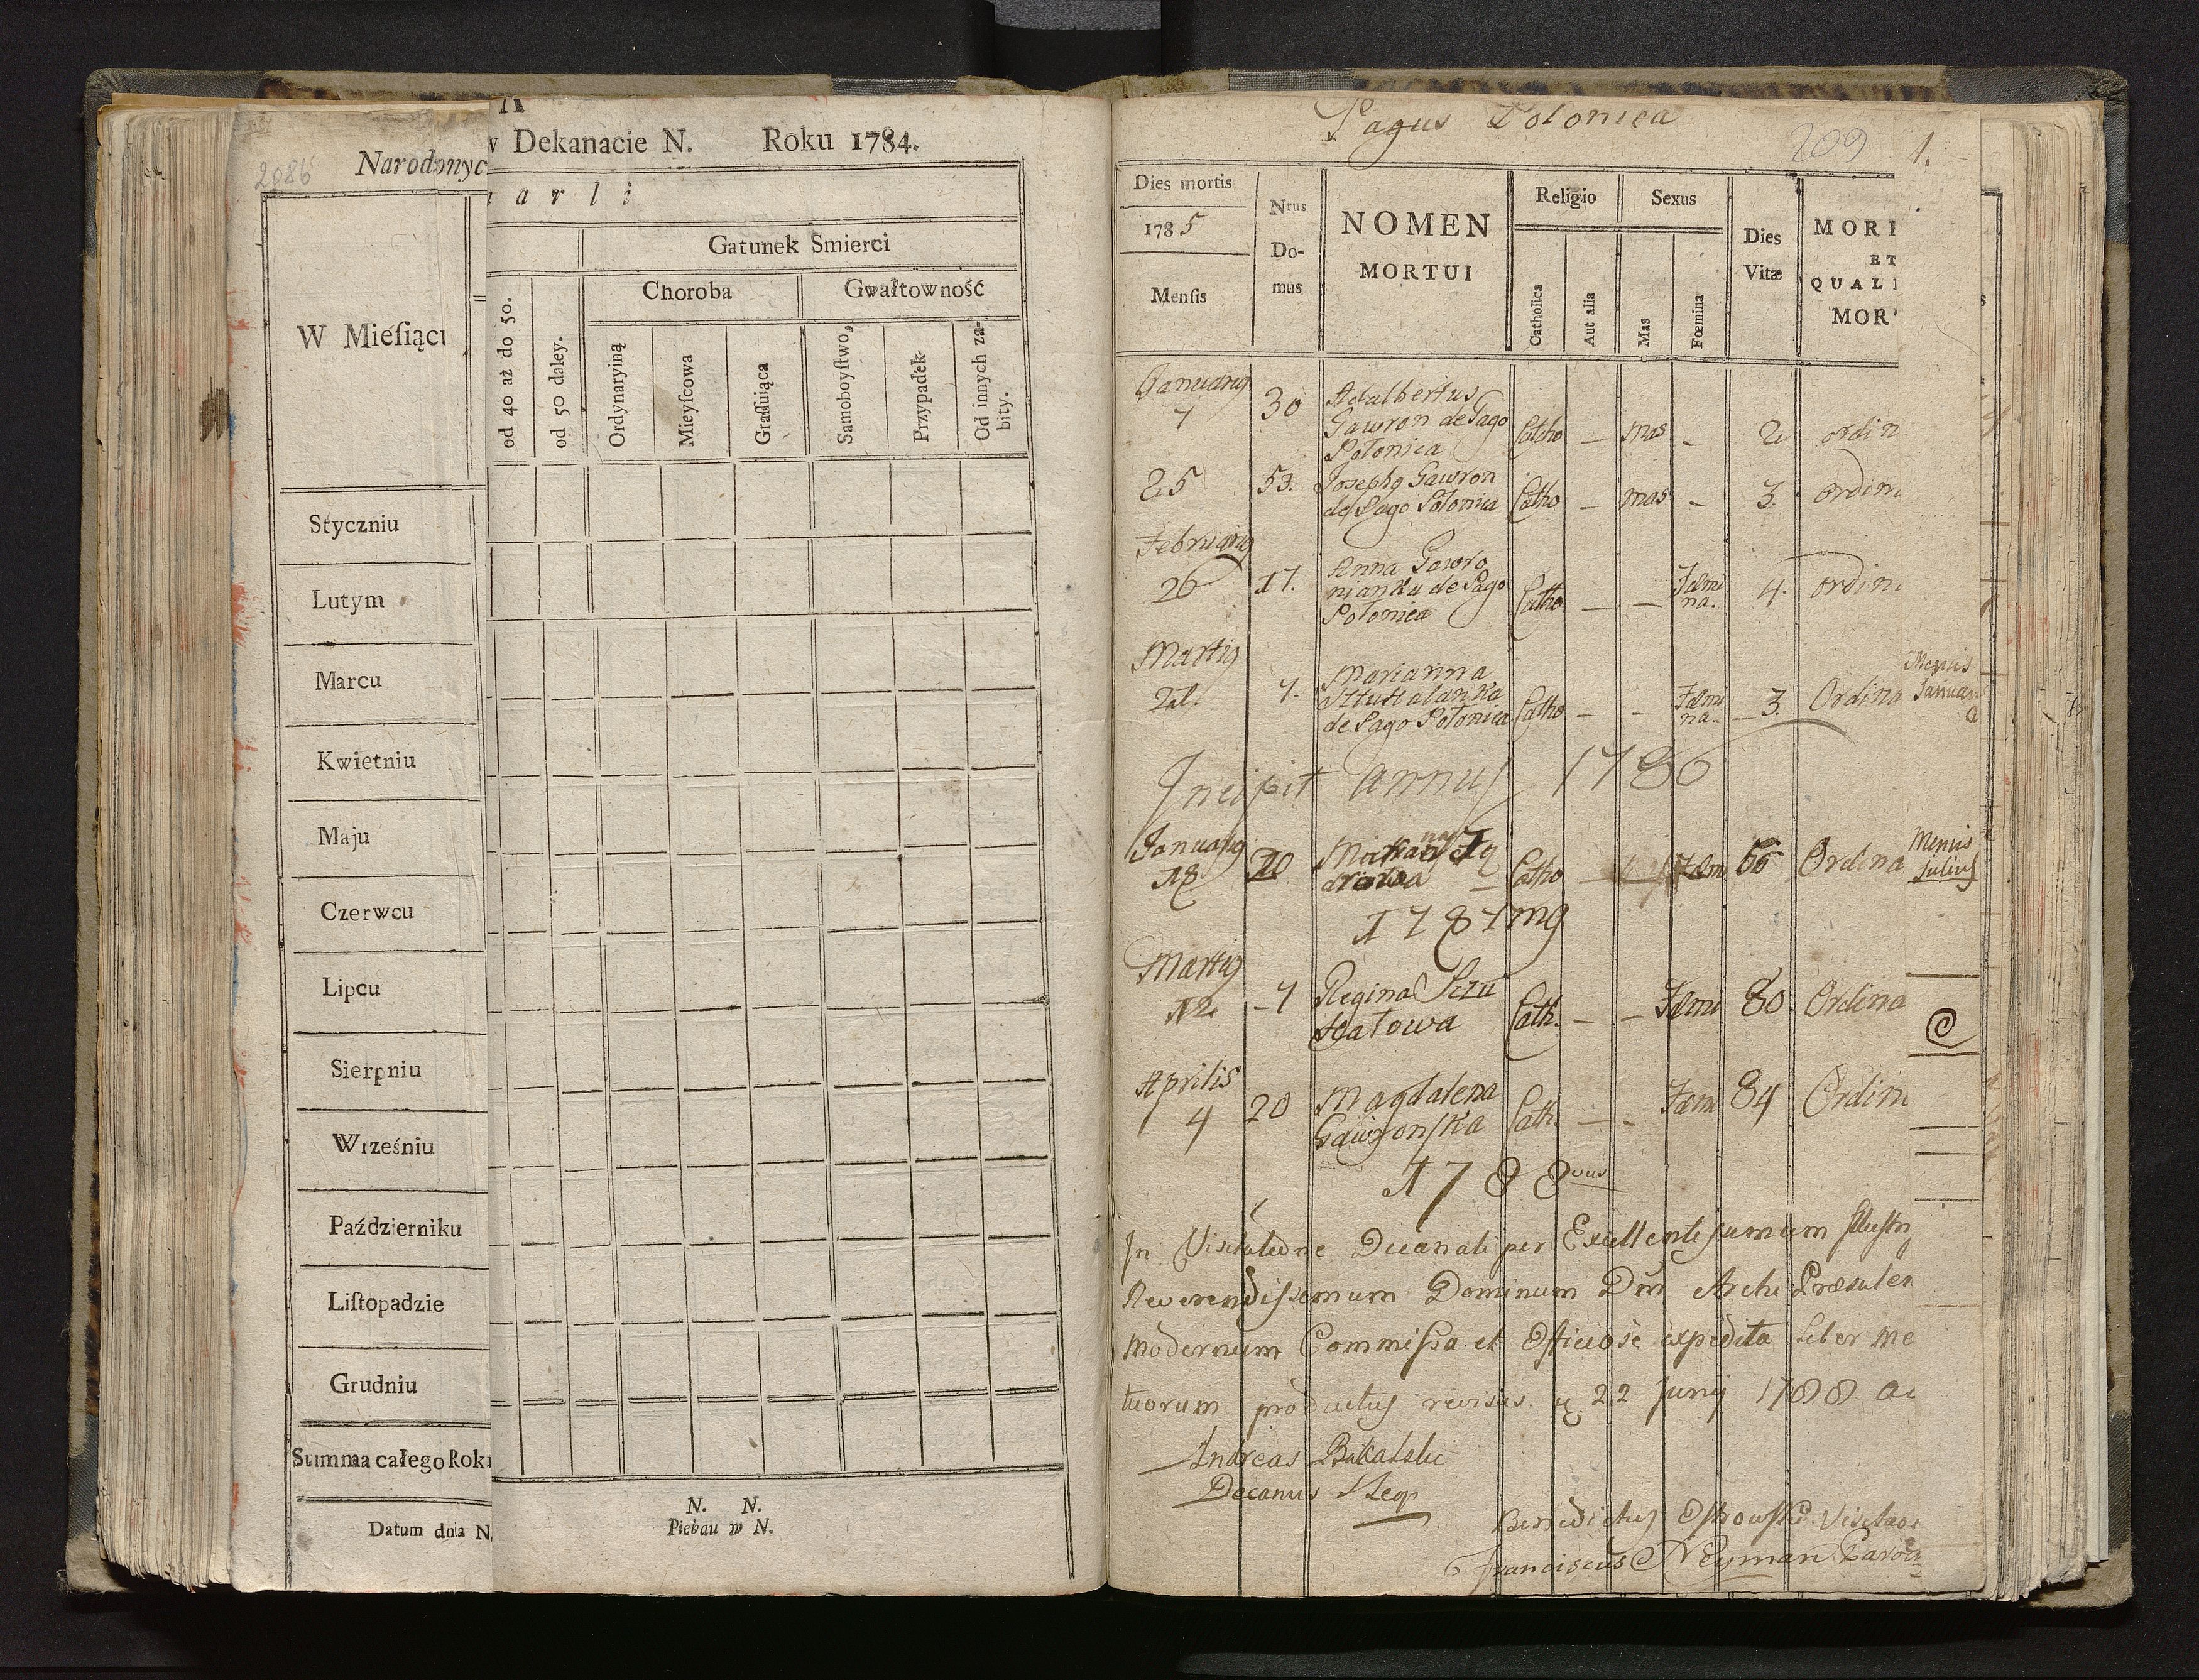 208b
Narodonyc
w Dekanacie N. Roku 1784.
arli
W Mieſiącu
Gatunek Smierci
Choroba
Gwałtowność
od 40 aż do 50.
od 50 daley.
Ordynaryiną
Mieyſcowa
Graſſuiąca
Samoboyſtwo,
Przypadek
Od innych za-
bity.
Styczniu
Lutym
Marcu
Kwietniu
Maju
Czerwcu
Lipcu
Sierpniu
Wrześniu
Październiku
Liſtopadzie
Grudniu
Summa całego Roku
Datum dnia N
N. N.
Pleban w N.
Pagus Polonica
209 1.
Dies mortis
1785
Menſis
Nrus
Do-
mus
NOMEN
MORTUI
Religio
Catholica
Aut alia
Sexus
Mas
Fœmina
Dies
Vitæ
MORB
ET
QUALI
MOR
Januarig
7 30 Adalbertus
Gawron de Pago
Polonica Catho — mas - 2 ordin
25 53. Josephg Gawron
de Pago Polonica Catho — mas - 3. ordina
Februarig
26 17. Anna Gawro
nianka de Pago
Polonica Catho — — Fæmi
na. 4. ordina
Martig
7. Marianna
de Pago Polonica Catho — - Fæmi
na. 3. Ordina
Mensis
Januar
Incipit annus 1786
Januarig
18 20 Catho — Fæm 66 Ordina
Mensis
julius
1787mg
Martig
12 - 7 Regina Szu
stałowa Cath. — — Fæmi 80 Ordina
Aprilis
4 20 Magdalena
Gawronſka Cath. — - Fæm 84 Ordina
1788vus
In Visitatione Decanali per Excellentissimum Illustr
Reverendiſsimum Dominum Dnm Archi Præsulem
modernum Commiſsa et Officiose expedita Liber Mo
tuorum productus revisus. 22 Junij 1788 a
Andreas
Decanus
Benedictus Oſtrowſki Visitaor
Franciscus Neyman Paroc